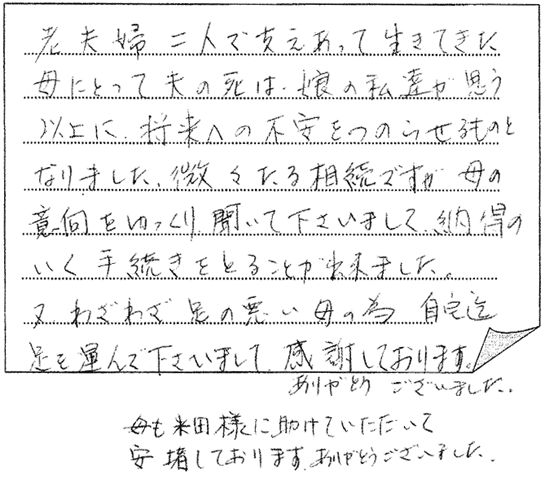 老夫婦二人で支えあって生きてきた
母にとって夫の死は、娘の私達が思う
以上に、将来への不安をつのらせるものと
なりました。微々たる相続ですが母の
意向をゆっくり聞いて下さいまして、納得の
いく手続きをとることが出来ました。
又わざわざ足の悪い母の為自宅迄
足を運んで下さいまして、感謝しております。
ありがとうございました。
母も米田様に助けていただいて
安堵しております。ありがとうございました。